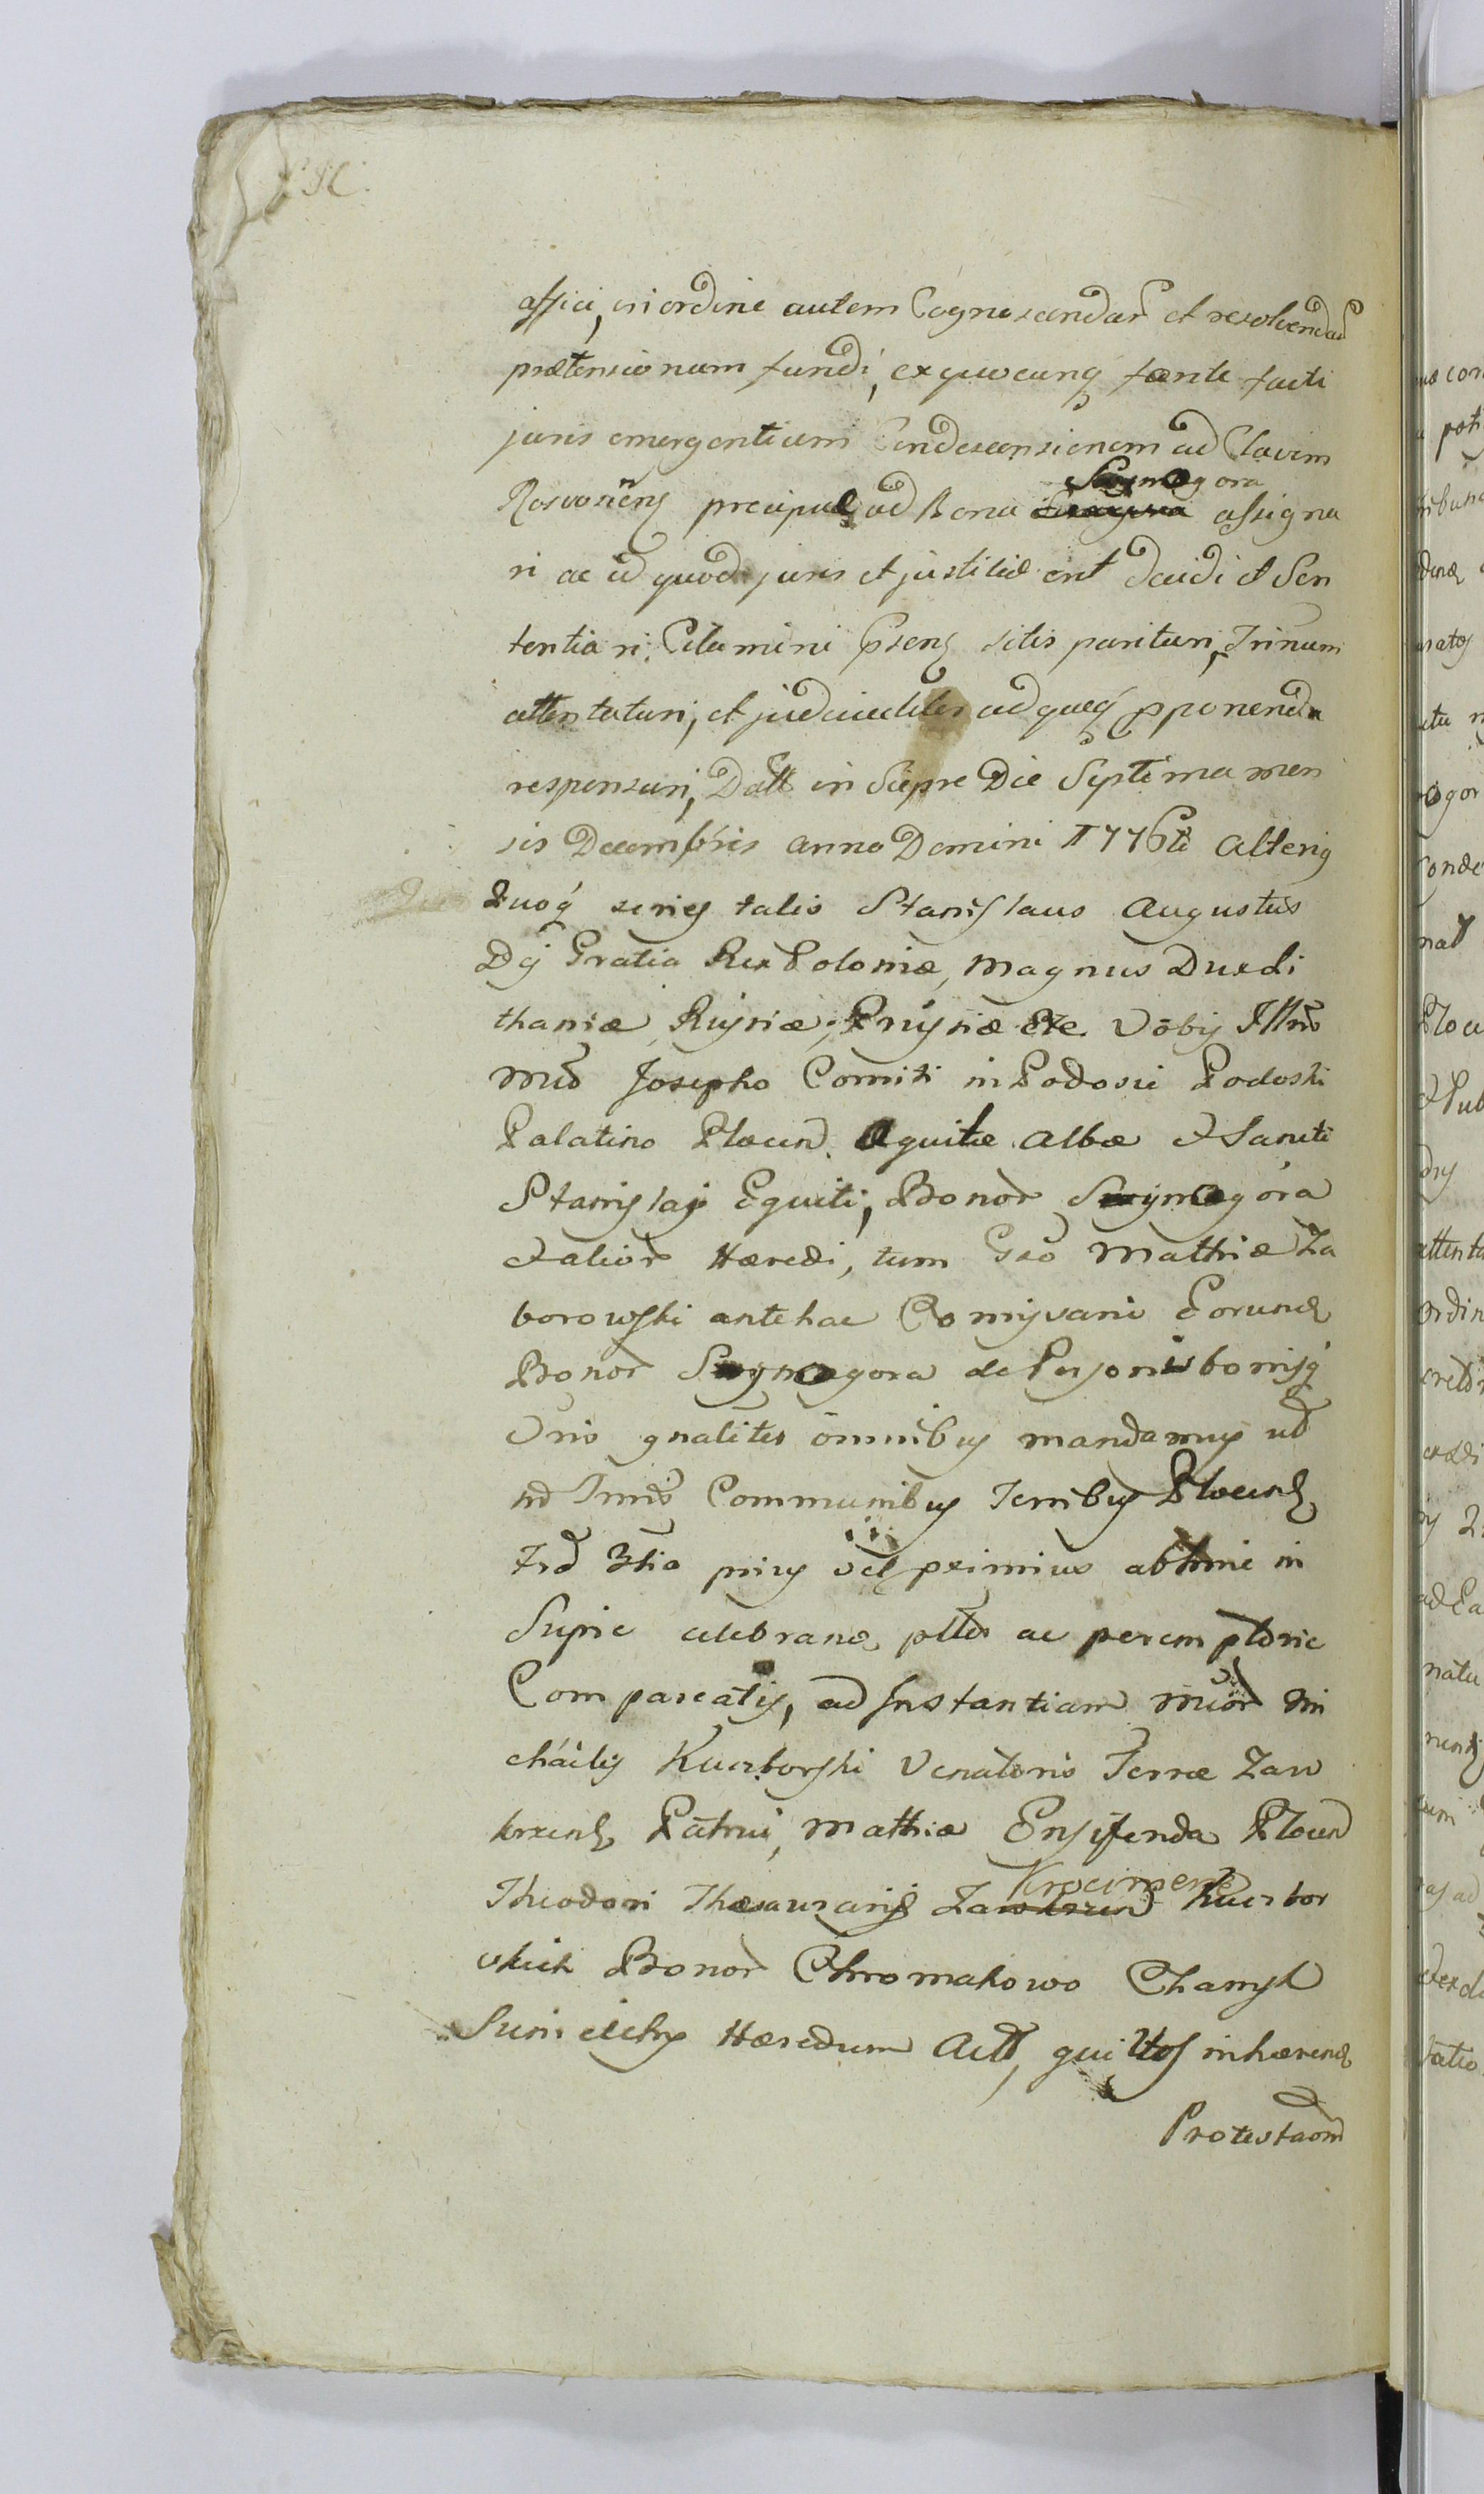 affici, in ordine autem Cognoscendar et resolvendar
prætensionum fundi, ex quocunq fonte facti
juris emergentium Condescensionem ad Clavim
Rosvoneñs precipue ad Bona Szymogora assigna
ri ac id quod juris et justitiæ erit decidi et Sen
tentiari. Citamini Psens sitis parituri, Trinum
attentaturi, et judicialiter ad quæq pponenda
responsuri, Datt in Siepre Die Septima men
sis Decembris anno Domini 1776ti Alterig
Quoq series talis Stanislaus Augustus
Dej Gratia Rex Poloniæ, Magnus Dux Li
thaniæ, Russiæ, Prussiæ Etc. Vobis Illrio
Mco Josepho Comiti in Podosie Podoski
Palatino Plocen. Aquilæ Albæ et Sancti
Stanislaj Equiti, Bonor Szymogora
et alior Hæredi, tum Gso Mathiæ Za
borowski antehac Comissario Eorund
Bonor Szymogora de Personis bonisq
Vris gnaliter omnibus mandamus ut
in Judis Communibus Terribus Plocens
Frd 3tia prius vel proximius abhinc in
Sieprc celebrand pltr ac peremptorie
Compareatis, ad Instantiam Mcor Mi
chaelis Kuczborski Venatoris Terræ Zaw
krzens Patrui, Mathiæ Ensiferida Plocen
Theodori Thesaurarij Krocimens Kuczbor
skich Bonor Chromakowo Chamsk
Hæredum Act, qui Itos inhærend
Protestaom